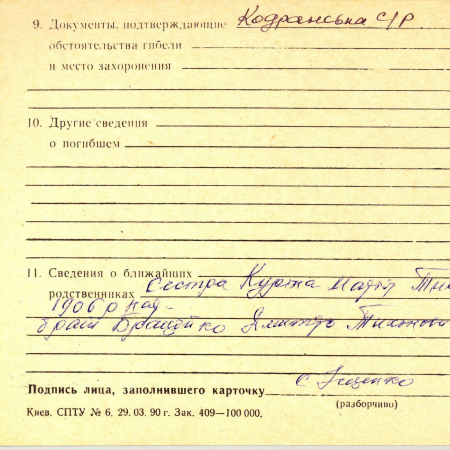 9. Документы, подтверждающие Кодранська С/Р
обстоятельства гибели
и место захоронения
10. Другие сведения
о погибшем
11. Сведения о ближайших
родственниках Сестра Курта Марія
1906 р
брат Дмитро
Подпись лица, заполнившего карточку
(разборчиво)
Киев. СПТУ № 6. 29. 03. 90 г. Зак. 409—100 000.